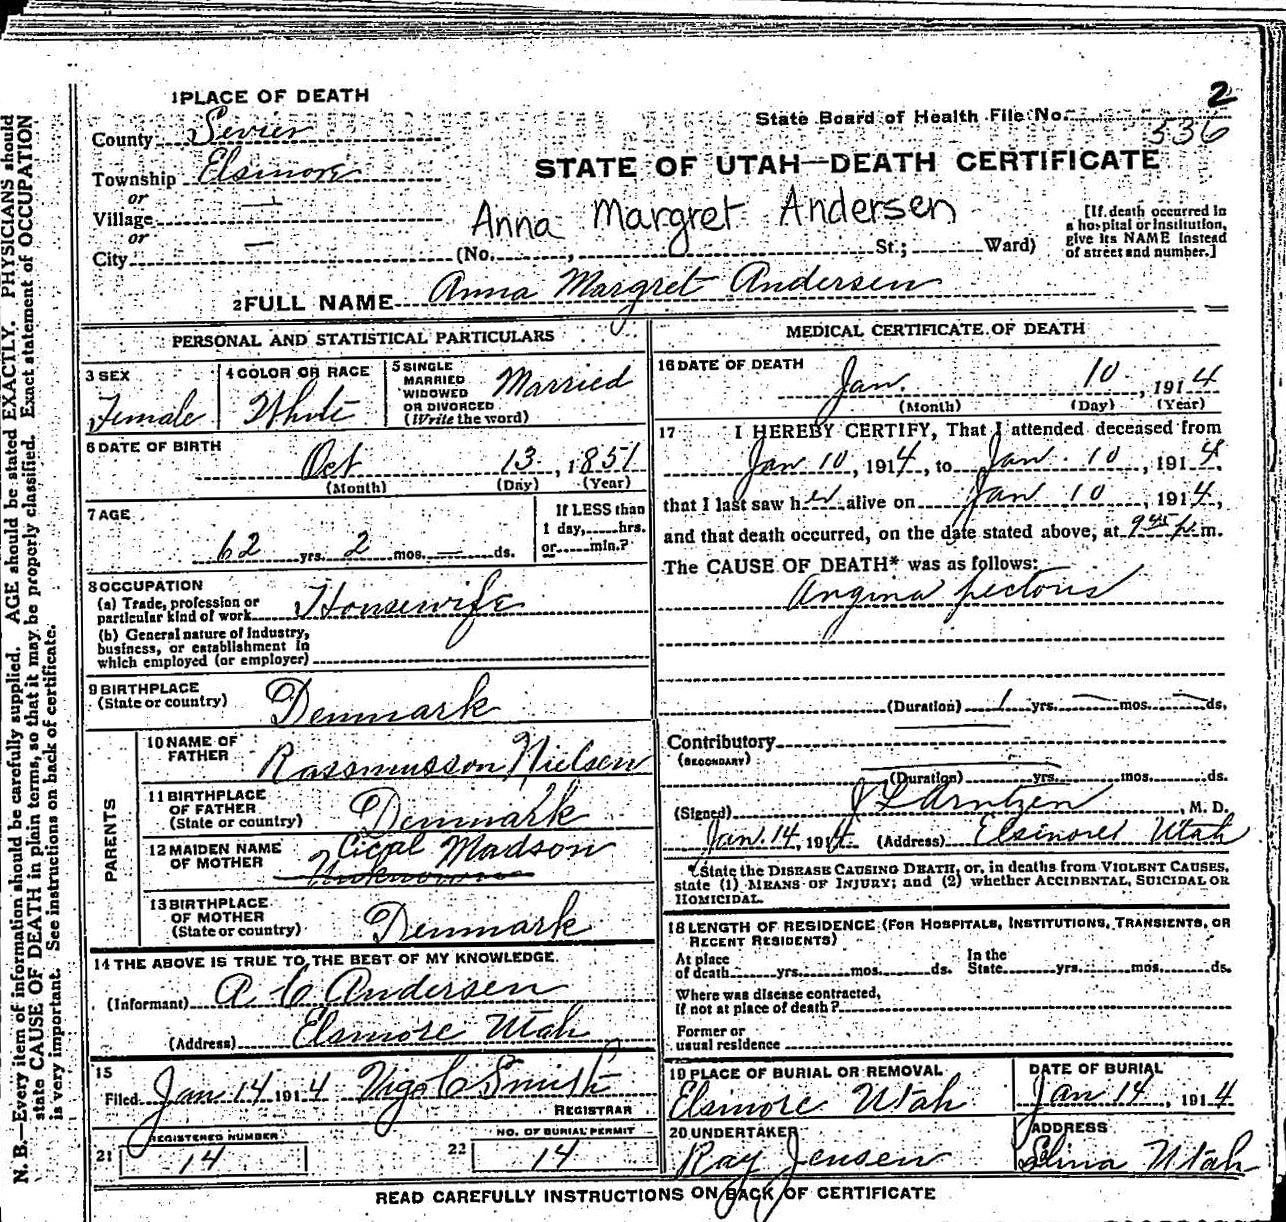 2
1 PLACE OF DEATH
State Board of Health File No. 536
County Sevier
STATE OF UTAH—DEATH CERTIFICATE
Township Elsinore
or
Village —
or
City —
Anna Margret Andersen
(No. , St.; Ward)
[If death occurred in
a hospital or institution,
give its NAME instead
of street and number.]
2 FULL NAME Anna Margret Andersen
PERSONAL AND STATISTICAL PARTICULARS
3 SEX
Female
4 COLOR OR RACE
White
5 SINGLE
MARRIED
WIDOWED
OR DIVORCED
(Write the word)
Married
6 DATE OF BIRTH
Oct 13, 1851
(Month) (Day) (Year)
7 AGE
62 yrs. 2 mos. — ds.
If LESS than
1 day, hrs.
or min.?
8 OCCUPATION
(a) Trade, profession or
particular kind of work Housewife
(b) General nature of industry,
business, or establishment in
which employed (or employer)
9 BIRTHPLACE
(State or country) Denmark
PARENTS
10 NAME OF
FATHER Rassmusson Nielsen
11 BIRTHPLACE
OF FATHER
(State or country) Denmark
12 MAIDEN NAME
OF MOTHER
Madson
Unknown
13 BIRTHPLACE
OF MOTHER
(State or country) Denmark
14 THE ABOVE IS TRUE TO THE BEST OF MY KNOWLEDGE.
(Informant) A C Andersen
(Address) Elsinore Utah
15
Filed Jan 14 1914 Vigo C Smith
REGISTRAR
REGISTERED NUMBER
21 14
NO. OF BURIAL PERMIT
22 14
MEDICAL CERTIFICATE OF DEATH
16 DATE OF DEATH
Jan. 10, 1914
(Month) (Day) (Year)
17 I HEREBY CERTIFY, That I attended deceased from
Jan 10, 1914, to Jan. 10, 1914.
that I last saw her alive on Jan 10, 1914,
and that death occurred, on the date stated above, at 9 45 p. m.
The CAUSE OF DEATH* was as follows:
Angina pectoris
(Duration) 1 yrs. — mos. — ds.
Contributory
(SECONDARY)
(Duration) yrs. mos. ds.
(Signed) Arntzen, M. D.
Jan. 14, 1914 (Address) Elsinore Utah
*State the DISEASE CAUSING DEATH, or, in deaths from VIOLENT CAUSES,
state (1) MEANS OF INJURY; and (2) whether ACCIDENTAL, SUICIDAL OR
HOMICIDAL.
18 LENGTH OF RESIDENCE (FOR HOSPITALS, INSTITUTIONS, TRANSIENTS, OR
RECENT RESIDENTS)
At place
of death yrs. mos. ds.
In the
State yrs. mos. ds.
Where was disease contracted,
If not at place of death?
Former or
usual residence
19 PLACE OF BURIAL OR REMOVAL
Elsinore Utah
DATE OF BURIAL
Jan 14, 1914
20 UNDERTAKER
Ray Jensen
ADDRESS
Utah
READ CAREFULLY INSTRUCTIONS ON BACK OF CERTIFICATE
N. B.—Every item of information should be carefully supplied. AGE should be stated EXACTLY. PHYSICIANS should
state CAUSE OF DEATH in plain terms, so that it may be properly classified. Exact statement of OCCUPATION
is very important. See instructions on back of certificate.